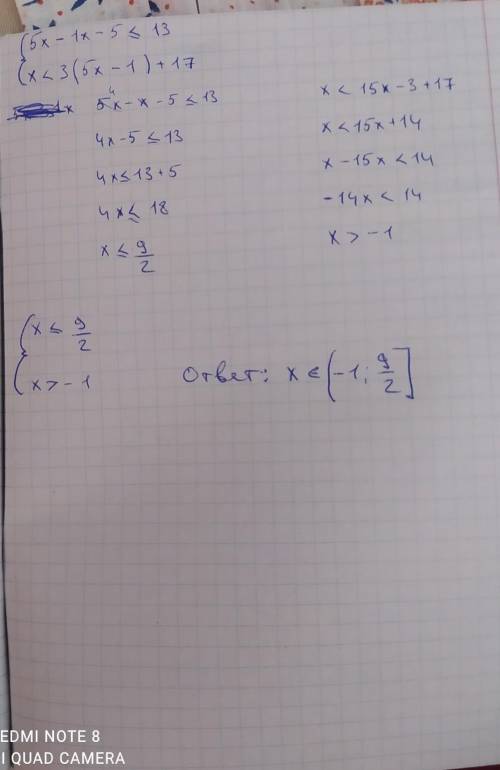 {5x - 1x - 5 ≤ 13
{x < 3(5x - 1) + 17
5x - x - 5 ≤ 13
4x - 5 ≤ 13
4x ≤ 13 + 5
4x ≤ 18
x ≤ 9/2
x < 15x - 3 + 17
x < 15x + 14
x - 15x < 14
-14x < 14
x > -1
{x ≤ 9/2
{x > -1
Ответ: x ∈ (-1; 9/2]
EDMI NOTE 8
I QUAD CAMERA